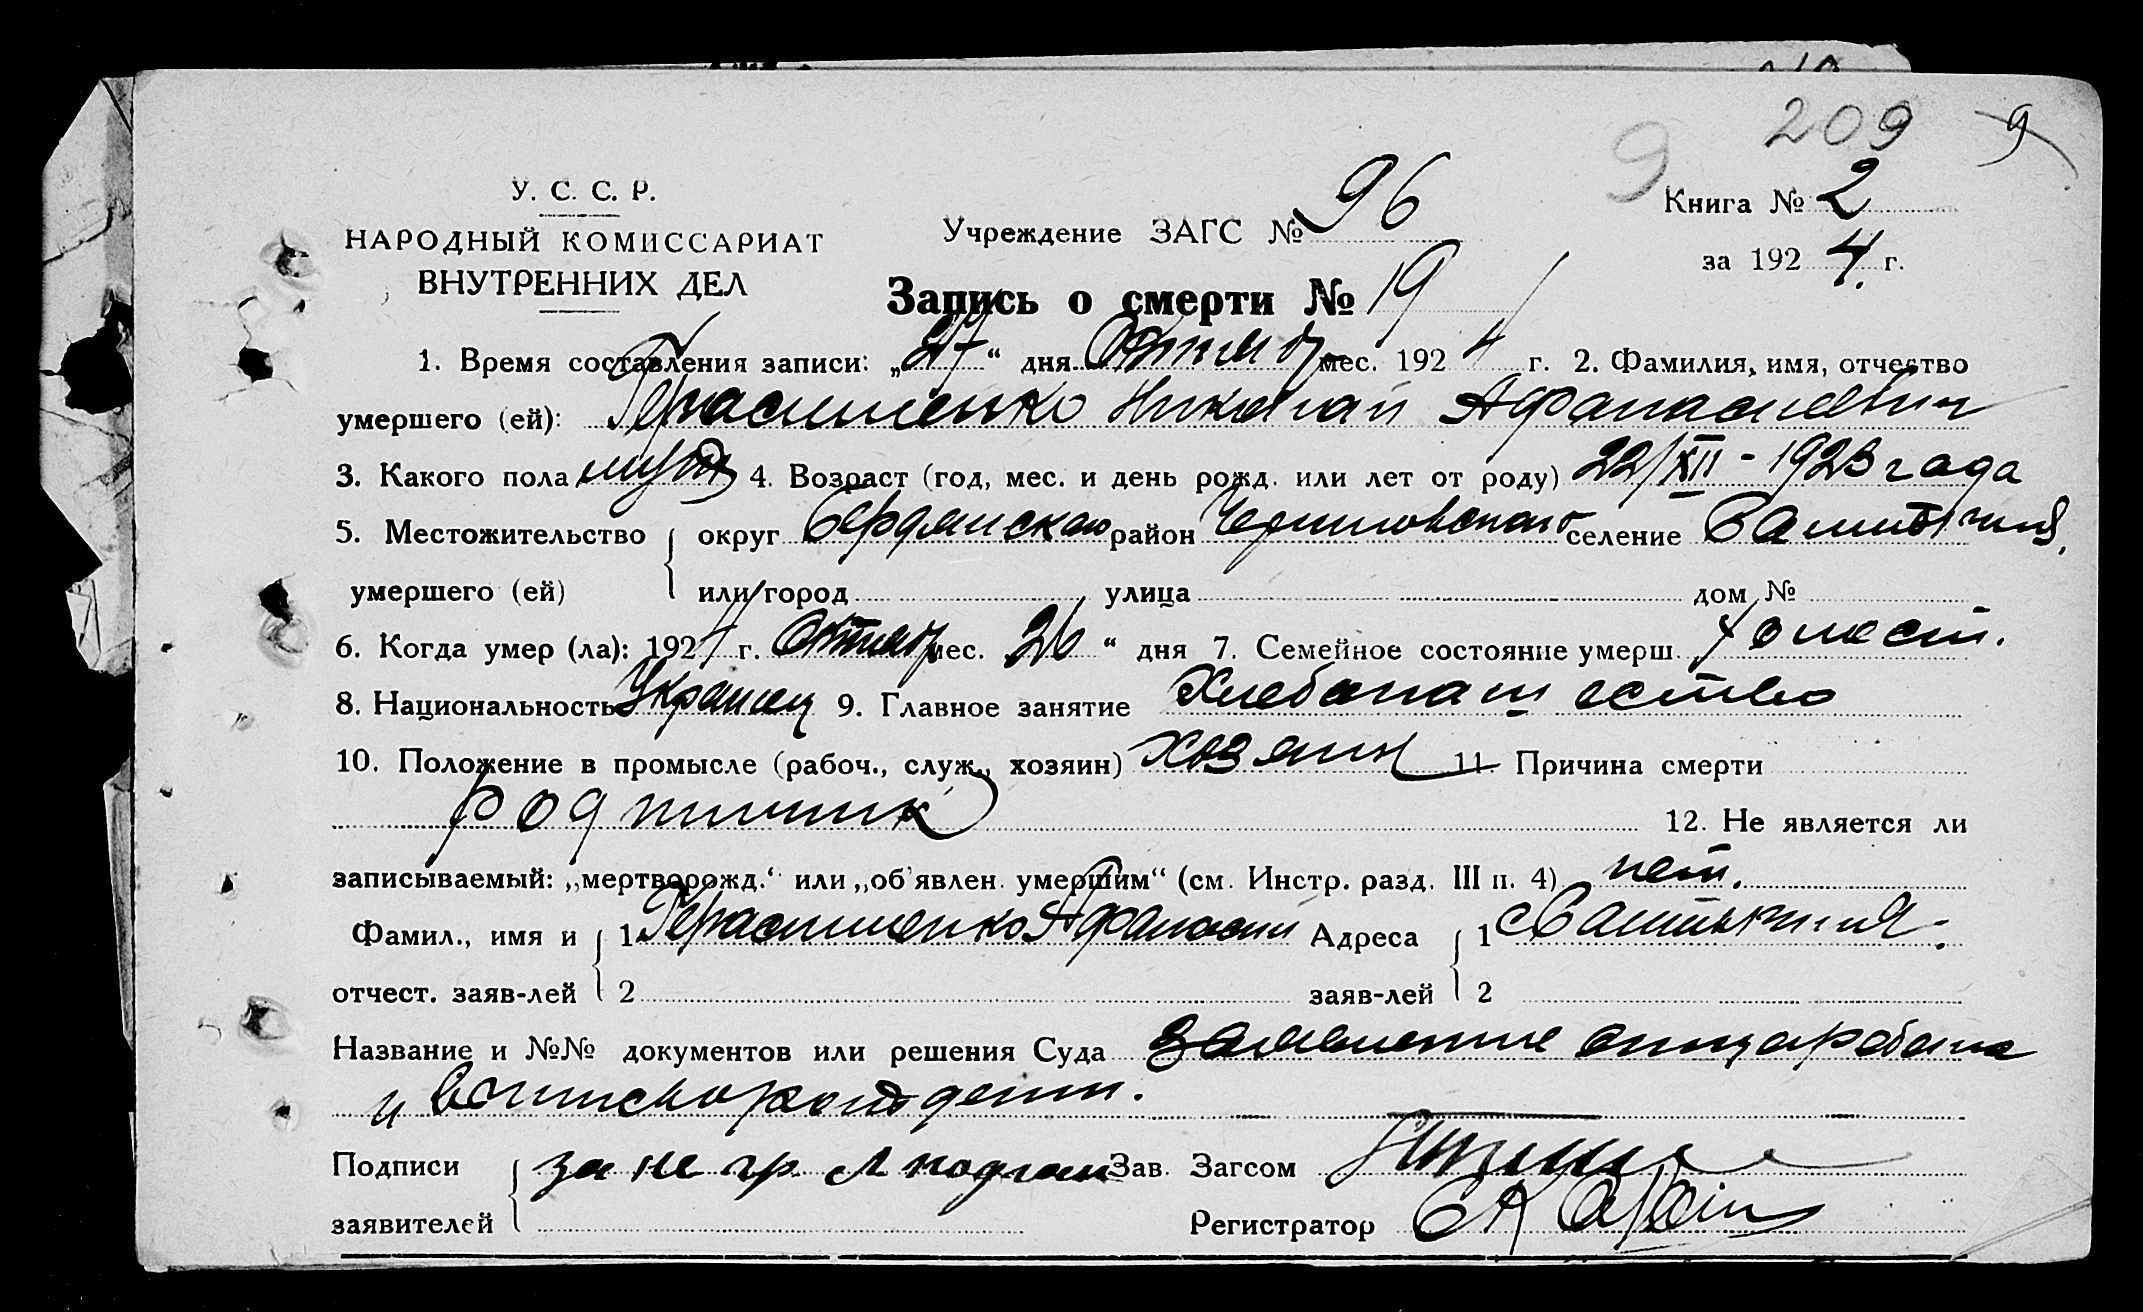 209 9
9
У. С. С. Р.
НАРОДНЫЙ КОМИССАРИАТ
ВНУТРЕННИХ ДЕЛ
Учреждение ЗАГС № 96
Книга № 2
за 1924. г.
Запись о смерти № 19
1. Время составления записи: „27“ дня Октяб мес. 1924 г. 2. Фамилия, имя, отчество
умершего (ей): Герасименко Николай Афанасиевич
3. Какого пола муж 4. Возраст (год, мес. и день рожд. или лет от роду) 22/XII - 1923 года
5. Местожительство округ Бердянского район Черниговского селение
умершего (ей) или город улица дом №
6. Когда умер (ла): 1924 г. Октяб мес. 26 “ дня 7. Семейное состояние умерш. холост.
8. Национальность Украинец 9. Главное занятие Хлебопашество
10. Положение в промысле (рабоч., служ., хозяин) хозяин 11. Причина смерти
родимчик
12. Не является ли
записываемый: „мертворожд.“ или „об'явлен. умершим“ (см. Инстр. разд. III п. 4) нет.
Фамил., имя и 1 Герасименко Афанасий Адреса 1
отчест. заяв-лей 2 заяв-лей 2
Название и №№ документов или решения Суда заявление
и
Подписи за не гр. Зав. Загсом
заявителей Регистратор